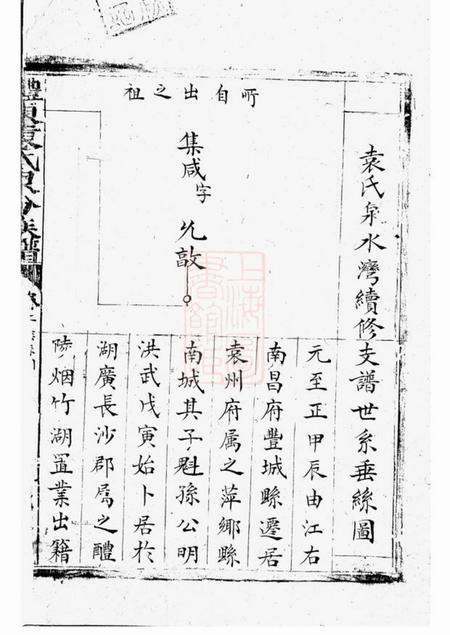 袁氏泉水灣續修支譜世系垂絲圖
所自出之祖
集咸字允敔
元至正甲辰由江右
南昌府豐城縣遷居
袁州府屬之萍鄉縣
南城其子魁孫公明
洪武戊寅始卜居於
湖廣長沙郡屬之醴
陵烟竹湖置業出籍
上海圖書館藏